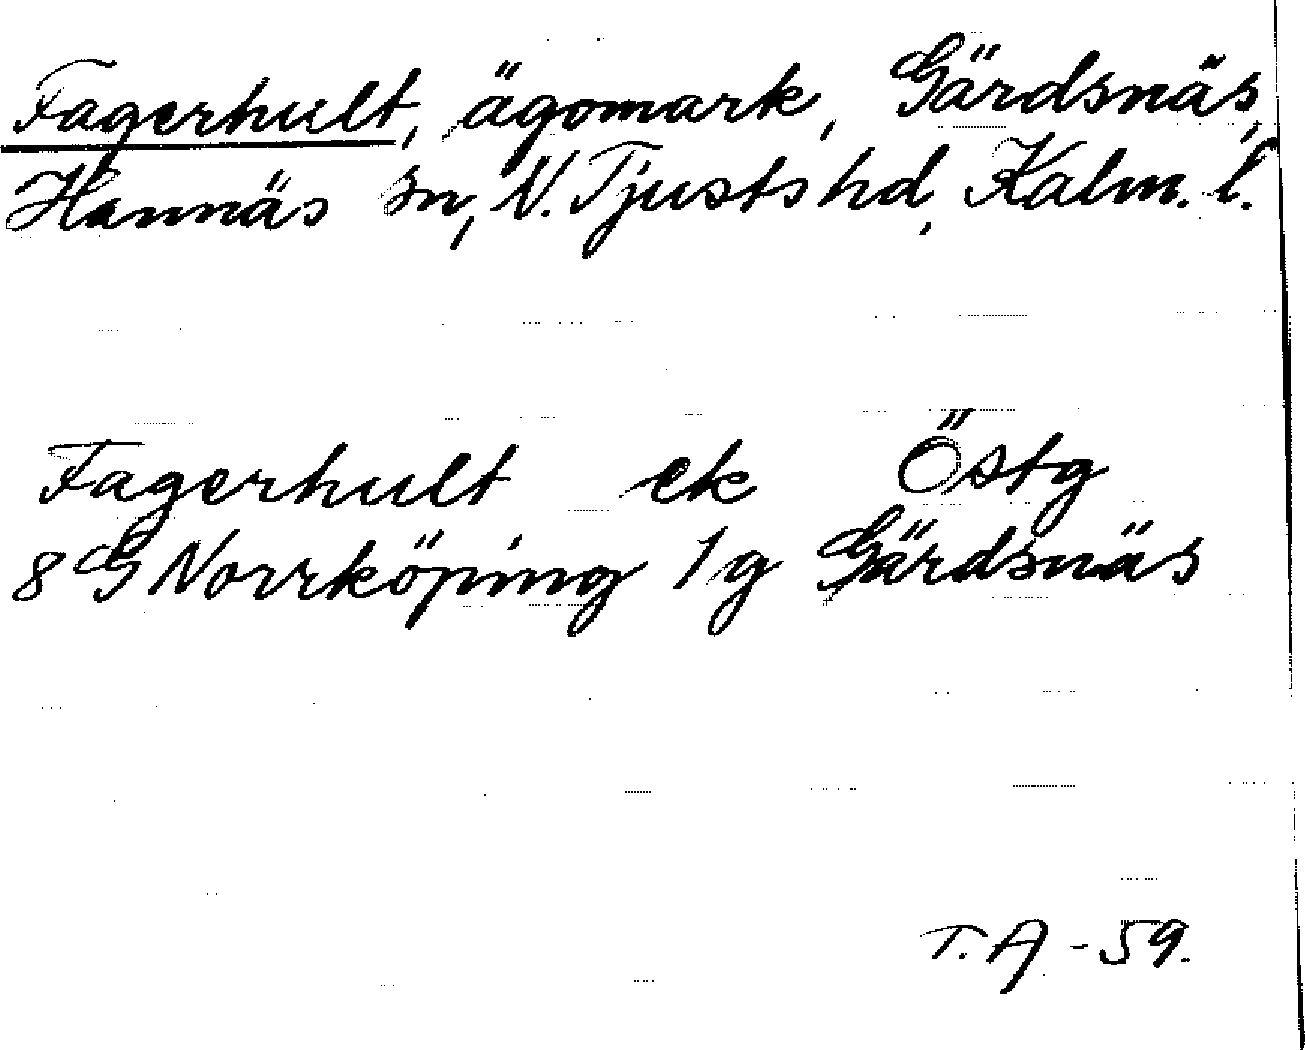 Fagerhult, ägomark, Gärdsnäs,
Hannäs sn, N. Tjusts hd, Kalm. l.
Fagerhult ek Östg
8 G Norrköping 1 g Gärdsnäs
T. A - 59.